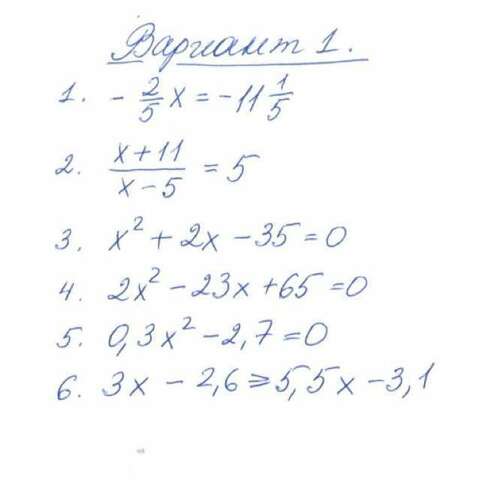 Вариант 1.
1. - 2/5 x = -11 1/5
2. (x+11)/(x-5) = 5
3. x² + 2x - 35 = 0
4. 2x² - 23x + 65 = 0
5. 0,3x² - 2,7 = 0
6. 3x - 2,6 ⩾ 5,5x - 3,1